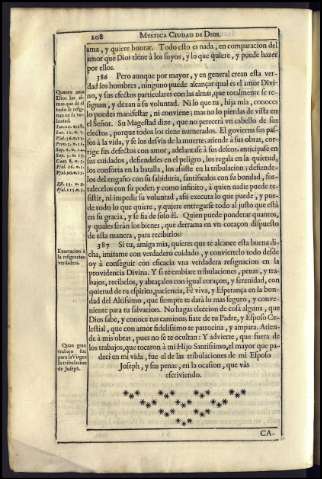 208 MYSTICA CIUDAD DE DIOS.
ama, y quiere honrar. Todo esto es nada, en comparacion del
amor que Dios tiene à los suyos, y lo que quiere, y puede hazer
por ellos.
386 Pero aunque por mayor, y en general crean esta ver-
dad los hombres, ninguno puede alcançar qual es el amor Divi-
no, y sus efectos particulares con las almas, que totalmente se re-
signan, y dexan a su voluntad. Ni lo que tu, hija mia, conoces
lo puedes manifestar, ni conviene; mas no lo pierdas de vista en
el Señor. Su Magestad dize, que no perecerà un cabello de sus
electos, porque todos los tiene numerados. El govierna sus pas-
sos à la vida, y se los desvia de la muerte, atiende à sus obras, cor-
rige sus defectos con amor, adelantase à sus deseos, anticipase en
sus cuidados, defiendelos en el peligro, los regala en la quietud,
los conforta en la batalla, los assiste en la tribulacion; defiende-
los del engaño con su sabiduria, santificalos con su bondad, for-
talecelos con su poder; y como infinito, à quien nadie puede re-
sistir, ni impedir su voluntad, assi executa lo que puede, y pue-
de todo lo que quiere, y quiere entregarse todo al justo que està
en su gracia, y se fia de solo èl. Quien puede ponderar quantos,
y quales seràn los bienes, que derrama en un coraçon dispuesto
de esta manera, para recibirlos?
387 Si tu, amiga mia, quieres que te alcance esta buena di-
cha, imitame con verdadero cuidado, y conviertelo todo desde
oy à conseguir con eficacia una verdadera resignacion en la
providencia Divina. Y si te embiare tribulaciones, penas, y tra-
bajos, recibelos, y abraçalos con igual coraçon, y serenidad, con
quietud de tu espiritu, paciencia, fè viva, y Esperança en la bon-
dad del Altissimo, que siempre te darà lo mas seguro, y conve-
niente para tu salvacion. No hagas eleccion de cosa alguna, que
Dios sabe, y conoce tus caminos; fiate de tu Padre, y Esposo Ce-
lestial, que con amor fidelissimo te patrocina, y ampara. Atien-
de à mis obras, pues no se te ocultan: Y advierte, que fuera de
los trabajos, que tocaron à mi Hijo Santissimo, el mayor que pa-
deci en mi vida, fue el de las tribulaciones de mi Esposo
Joseph, y sus penas, en la ocasion, que vàs
escriviendo.
CA-
Exortacion à
la resignacion
verdadera.
Quan gran
trabajo fue
para la Virgen
las tribulaciones
de Joseph.